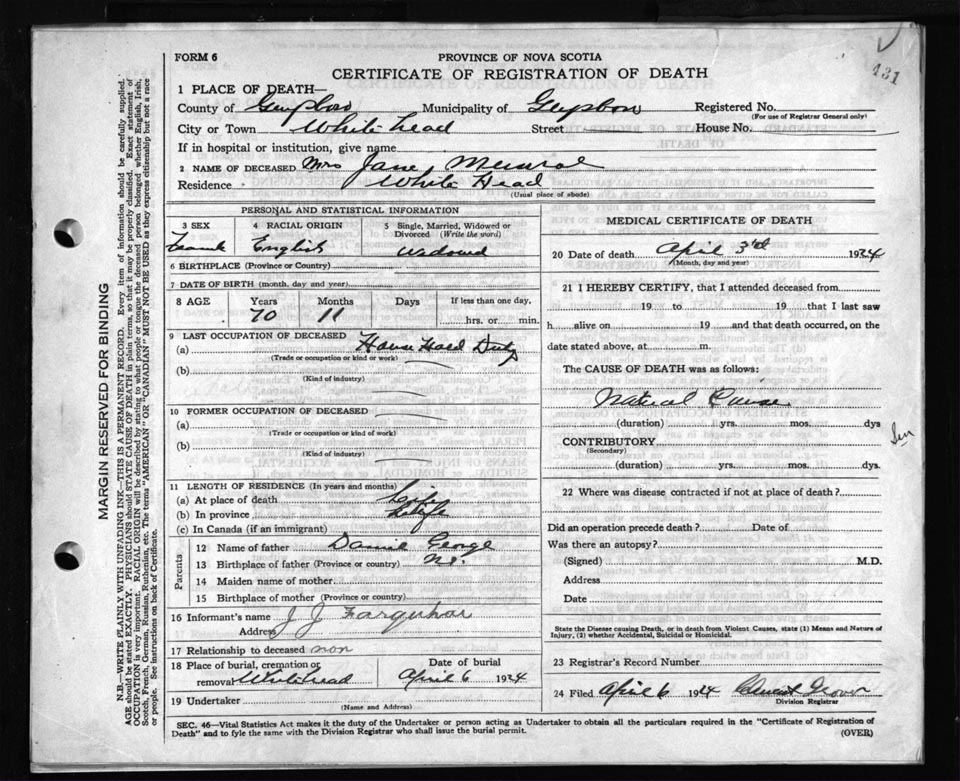 431
FORM 6
PROVINCE OF NOVA SCOTIA
CERTIFICATE OF REGISTRATION OF DEATH
1 PLACE OF DEATH—
County of Guysboro Municipality of Guysboro Registered No.
(For use of Registrar General only)
City or Town White head Street House No.
If in hospital or institution, give name
2 NAME OF DECEASED Mrs Jane Munroe
Residence White Head
(Usual place of abode)
PERSONAL AND STATISTICAL INFORMATION
3 SEX 4 RACIAL ORIGIN 5 Single, Married, Widowed or Divorced (Write the word)
Female English Widowed
6 BIRTHPLACE (Province or Country)
7 DATE OF BIRTH (month, day and year)
8 AGE Years Months Days If less than one day,
70 11 hrs. or min.
9 LAST OCCUPATION OF DECEASED
(a) House Hold Duty
(Trade or occupation or kind of work)
(b)
(Kind of industry)
10 FORMER OCCUPATION OF DECEASED
(a)
(Trade or occupation or kind of work)
(b)
(Kind of industry)
11 LENGTH OF RESIDENCE (In years and months)
(a) At place of death Life
(b) In province Life
(c) In Canada (if an immigrant)
Parents
12 Name of father George
13 Birthplace of father (Province or country) N.S.
14 Maiden name of mother
15 Birthplace of mother (Province or country)
16 Informant's name J J Farquhar
Address
17 Relationship to deceased non
18 Place of burial, cremation or removal Whitehead
Date of burial April 6 1924
19 Undertaker
(Name and Address)
MEDICAL CERTIFICATE OF DEATH
20 Date of death April 3rd 1924
(Month, day and year)
21 I HEREBY CERTIFY, that I attended deceased from
19 to 19 that I last saw
h alive on 19 and that death occurred, on the
date stated above, at m.
The CAUSE OF DEATH was as follows:
Natural Cause
(duration) yrs. mos. dys
CONTRIBUTORY
(Secondary)
(duration) yrs. mos. dys.
22 Where was disease contracted if not at place of death?
Did an operation precede death? Date of
Was there an autopsy?
(Signed) M.D.
Address
Date
State the Disease causing Death, or in death from Violent Causes, state (1) Means and Nature of
Injury, (2) whether Accidental, Suicidal or Homicidal.
23 Registrar's Record Number
24 Filed April 6 1924
Division Registrar
SEC. 46—Vital Statistics Act makes it the duty of the Undertaker or person acting as Undertaker to obtain all the particulars required in the "Certificate of Registration of
Death" and to fyle the same with the Division Registrar who shall issue the burial permit.
(OVER)
MARGIN RESERVED FOR BINDING
N.B.—WRITE PLAINLY WITH UNFADING INK—THIS IS A PERMANENT RECORD. Every item of information should be carefully supplied.
AGE should be stated EXACTLY. PHYSICIANS should STATE CAUSE OF DEATH in plain terms, so that it may be properly classified. Exact statement of
OCCUPATION is very important. RACIAL ORIGIN will be described by stating to what people or tongue the deceased person belonged whether English, Irish,
Scotch, French, German, Russian, Ruthenian, etc. The terms "AMERICAN" OR "CANADIAN" MUST NOT BE USED as they express citizenship but not a race
or people. See instructions on back of Certificate.